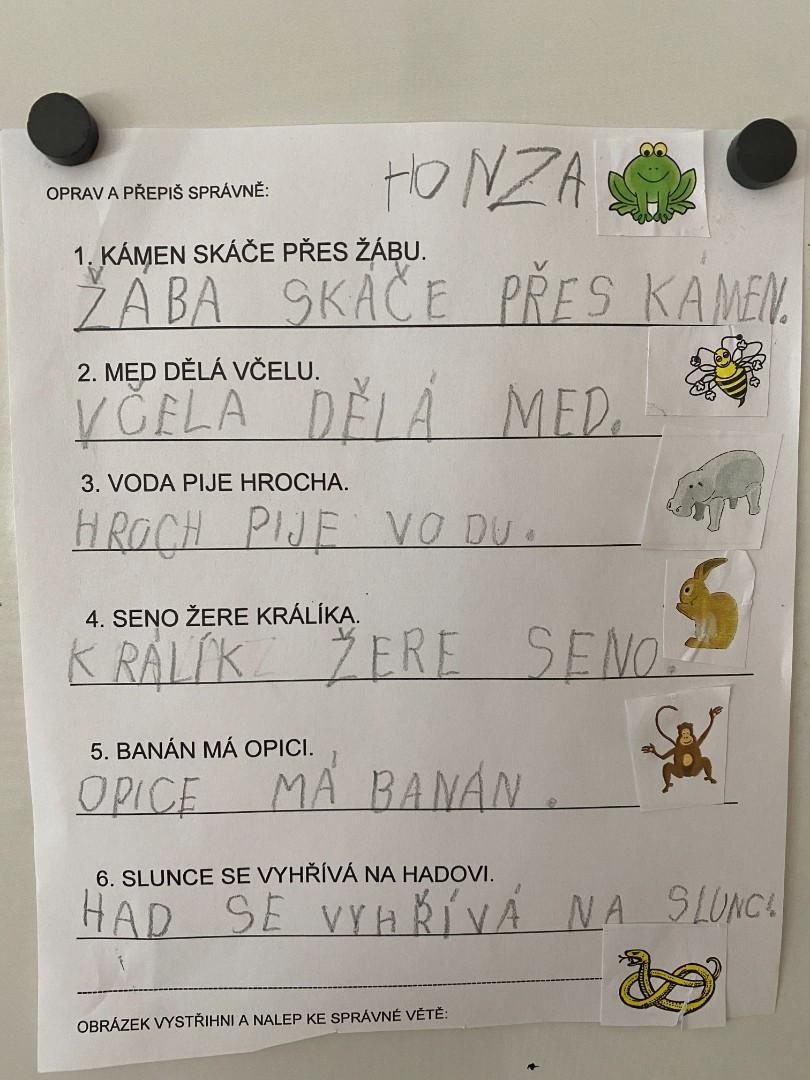 HONZA
OPRAV A PŘEPIŠ SPRÁVNĚ:
1. KÁMEN SKÁČE PŘES ŽÁBU.
ŽÁBA SKÁČE PŘES KÁMEN.
2. MED DĚLÁ VČELU.
VČELA DĚLÁ MED.
3. VODA PIJE HROCHA.
HROCH PIJE VODU.
4. SENO ŽERE KRÁLÍKA.
KRÁLÍK ŽERE SENO.
5. BANÁN MÁ OPICI.
OPICE MÁ BANÁN.
6. SLUNCE SE VYHŘÍVÁ NA HADOVI.
HAD SE VYHŘÍVÁ NA SLUNCI.
OBRÁZEK VYSTŘIHNI A NALEP KE SPRÁVNÉ VĚTĚ: